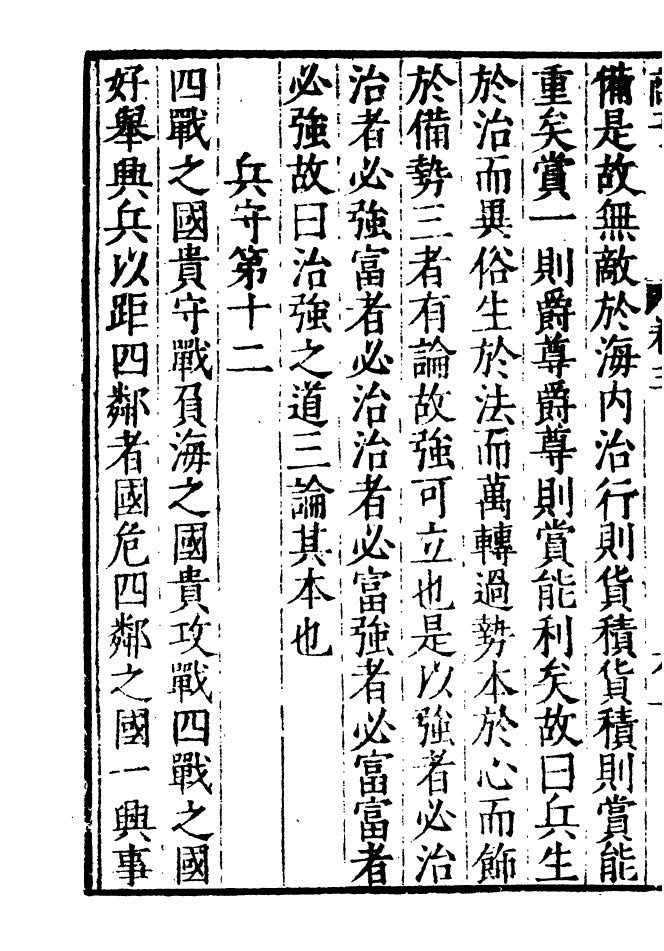 備是故無敵於海内治行則貨積貨積則賞能
重矣賞一則爵尊爵尊則賞能利矣故曰兵生
於治而異俗生於法而萬轉過勢本於心而飾
於備勢三者有論故強可立也是以強者必治
治者必強富者必治治者必富強者必富富者
必強故曰治強之道三論其本也
兵守第十二
四戰之國貴守戰負海之國貴攻戰四戰之國
好舉興兵以距四鄰者國危四鄰之國一興事